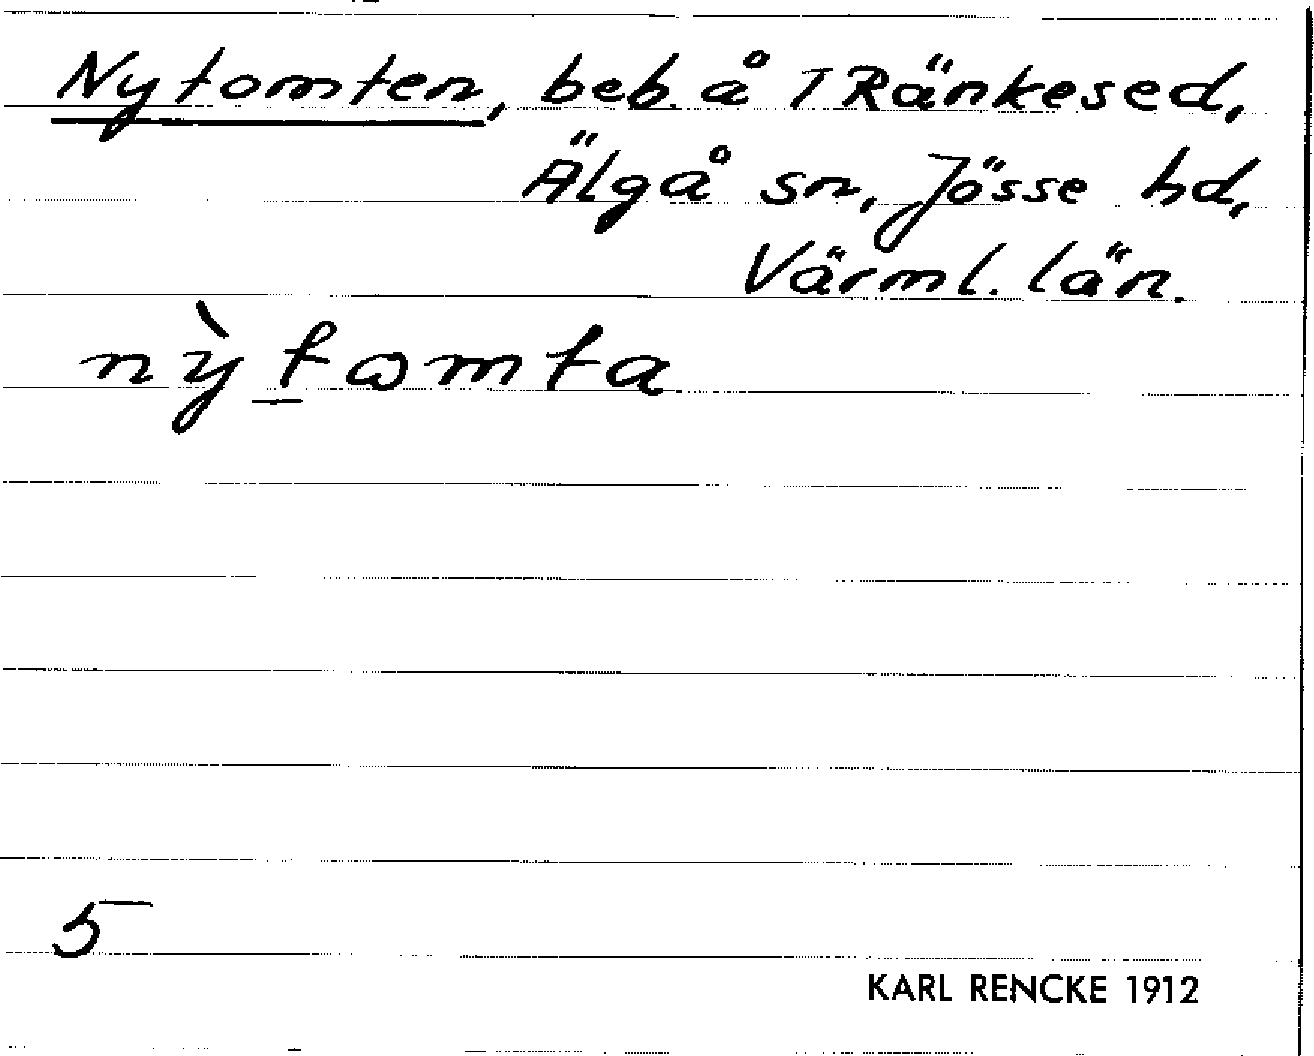 Nytomten, beb. å 1 Ränkesed,
Älgå sn, Jösse hd,
Värml. län.
nỳtωmta
5
KARL RENCKE 1912